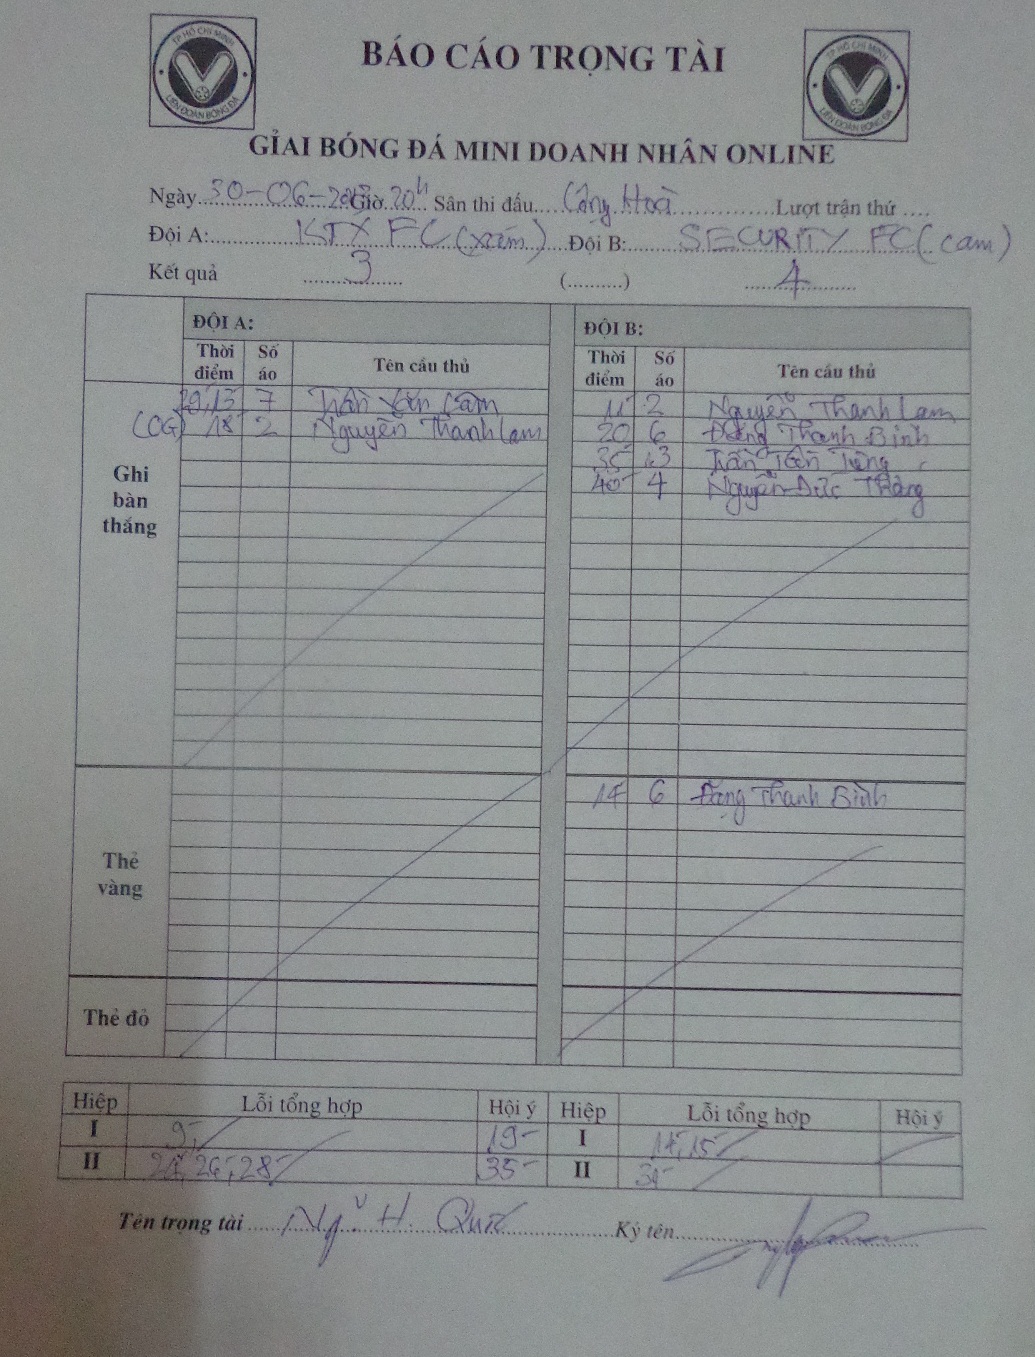 TP HỒ CHÍ MINH
LIÊN ĐOÀN BÓNG ĐÁ
BÁO CÁO TRỌNG TÀI
TP HỒ CHÍ MINH
LIÊN ĐOÀN BÓNG ĐÁ
GỈAI BÓNG ĐÁ MINI DOANH NHÂN ONLINE
Ngày 30-06- Giờ 20h Sân thi đấu Cộng Hoà Lượt trận thứ ....
Đội A: KTX FC (xám) Đội B: SECURITY FC (cam)
Kết quả 3 (..........) 4
ĐỘI A: ĐỘI B:
Thời điểm Số áo Tên cầu thủ Thời điểm Số áo Tên cầu thủ
7 Trần Văn Cảm 11 2 Nguyễn Thanh Lam
(OG) 18 2 Nguyễn Thanh Lam 20 6 Đặng Thanh Bình
35 Trần Tiến
40 4 Nguyễn Đức Thắng
Ghi bàn thắng
14 6 Đặng Thanh Bình
Thẻ vàng
Thẻ đỏ
Hiệp Lỗi tổng hợp Hội ý Hiệp Lỗi tổng hợp Hội ý
I 9 19 I 15
II 26, 28 35 II
Tên trọng tài H. Ký tên